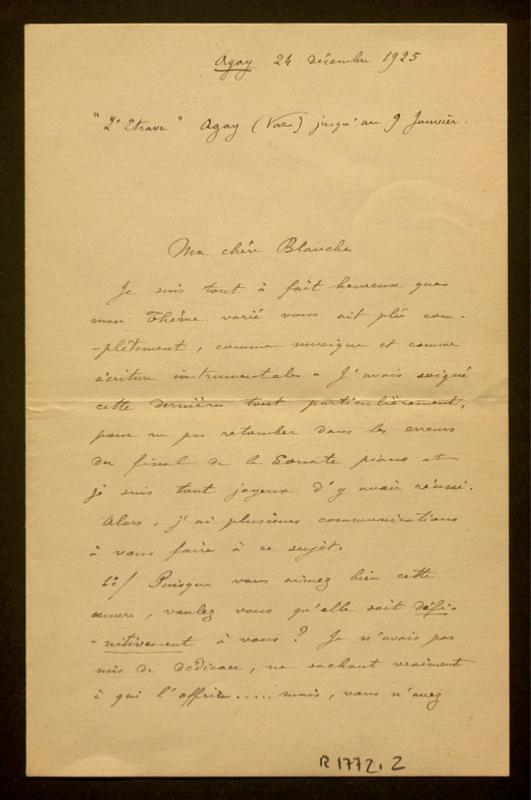 Agay 24 décembre 1925
"L'Etrave" Agay (Var) jusqu'au 9 Janvier.
Ma chère Blanche
Je suis tout à fait heureuse que
mon Thème varié vous ait plû com-
-plètement, comme musique et comme
écriture instrumentale. J'avais soigné
cette dernière tout particulièrement,
pour ne pas retomber dans les erreurs
du final de la Sonate piano et
je suis tout joyeux d'y avoir réussi.
Alors, j'ai plusieurs communications
à vous faire à ce sujet.
1º/ Puisque vous aimez bien cette
œuvre, voulez vous qu'elle soit défi-
-nitivement à vous? Je n'avais pas
mis de dédicace, ne sachant vraiment
à qui l'offrir ..... mais, vous n'avez
R 1772, 2